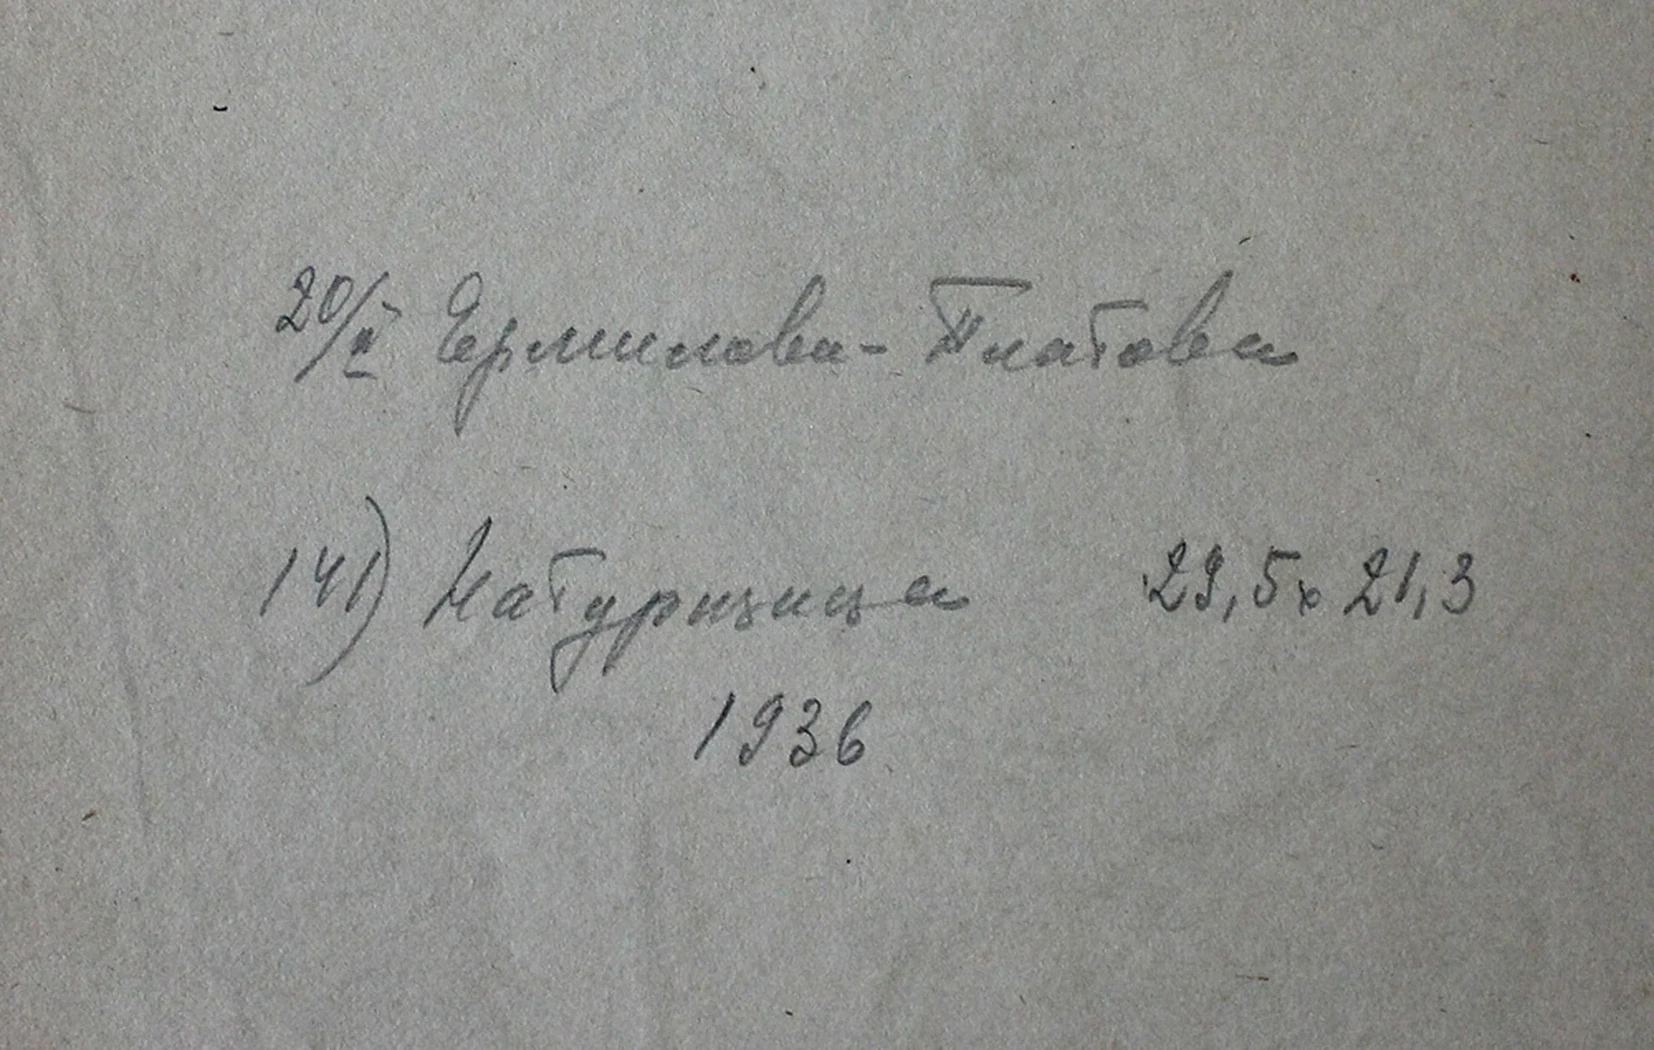 20/II Ермилова-Платова
141) Натурщица 29,5 x 21,3
1936